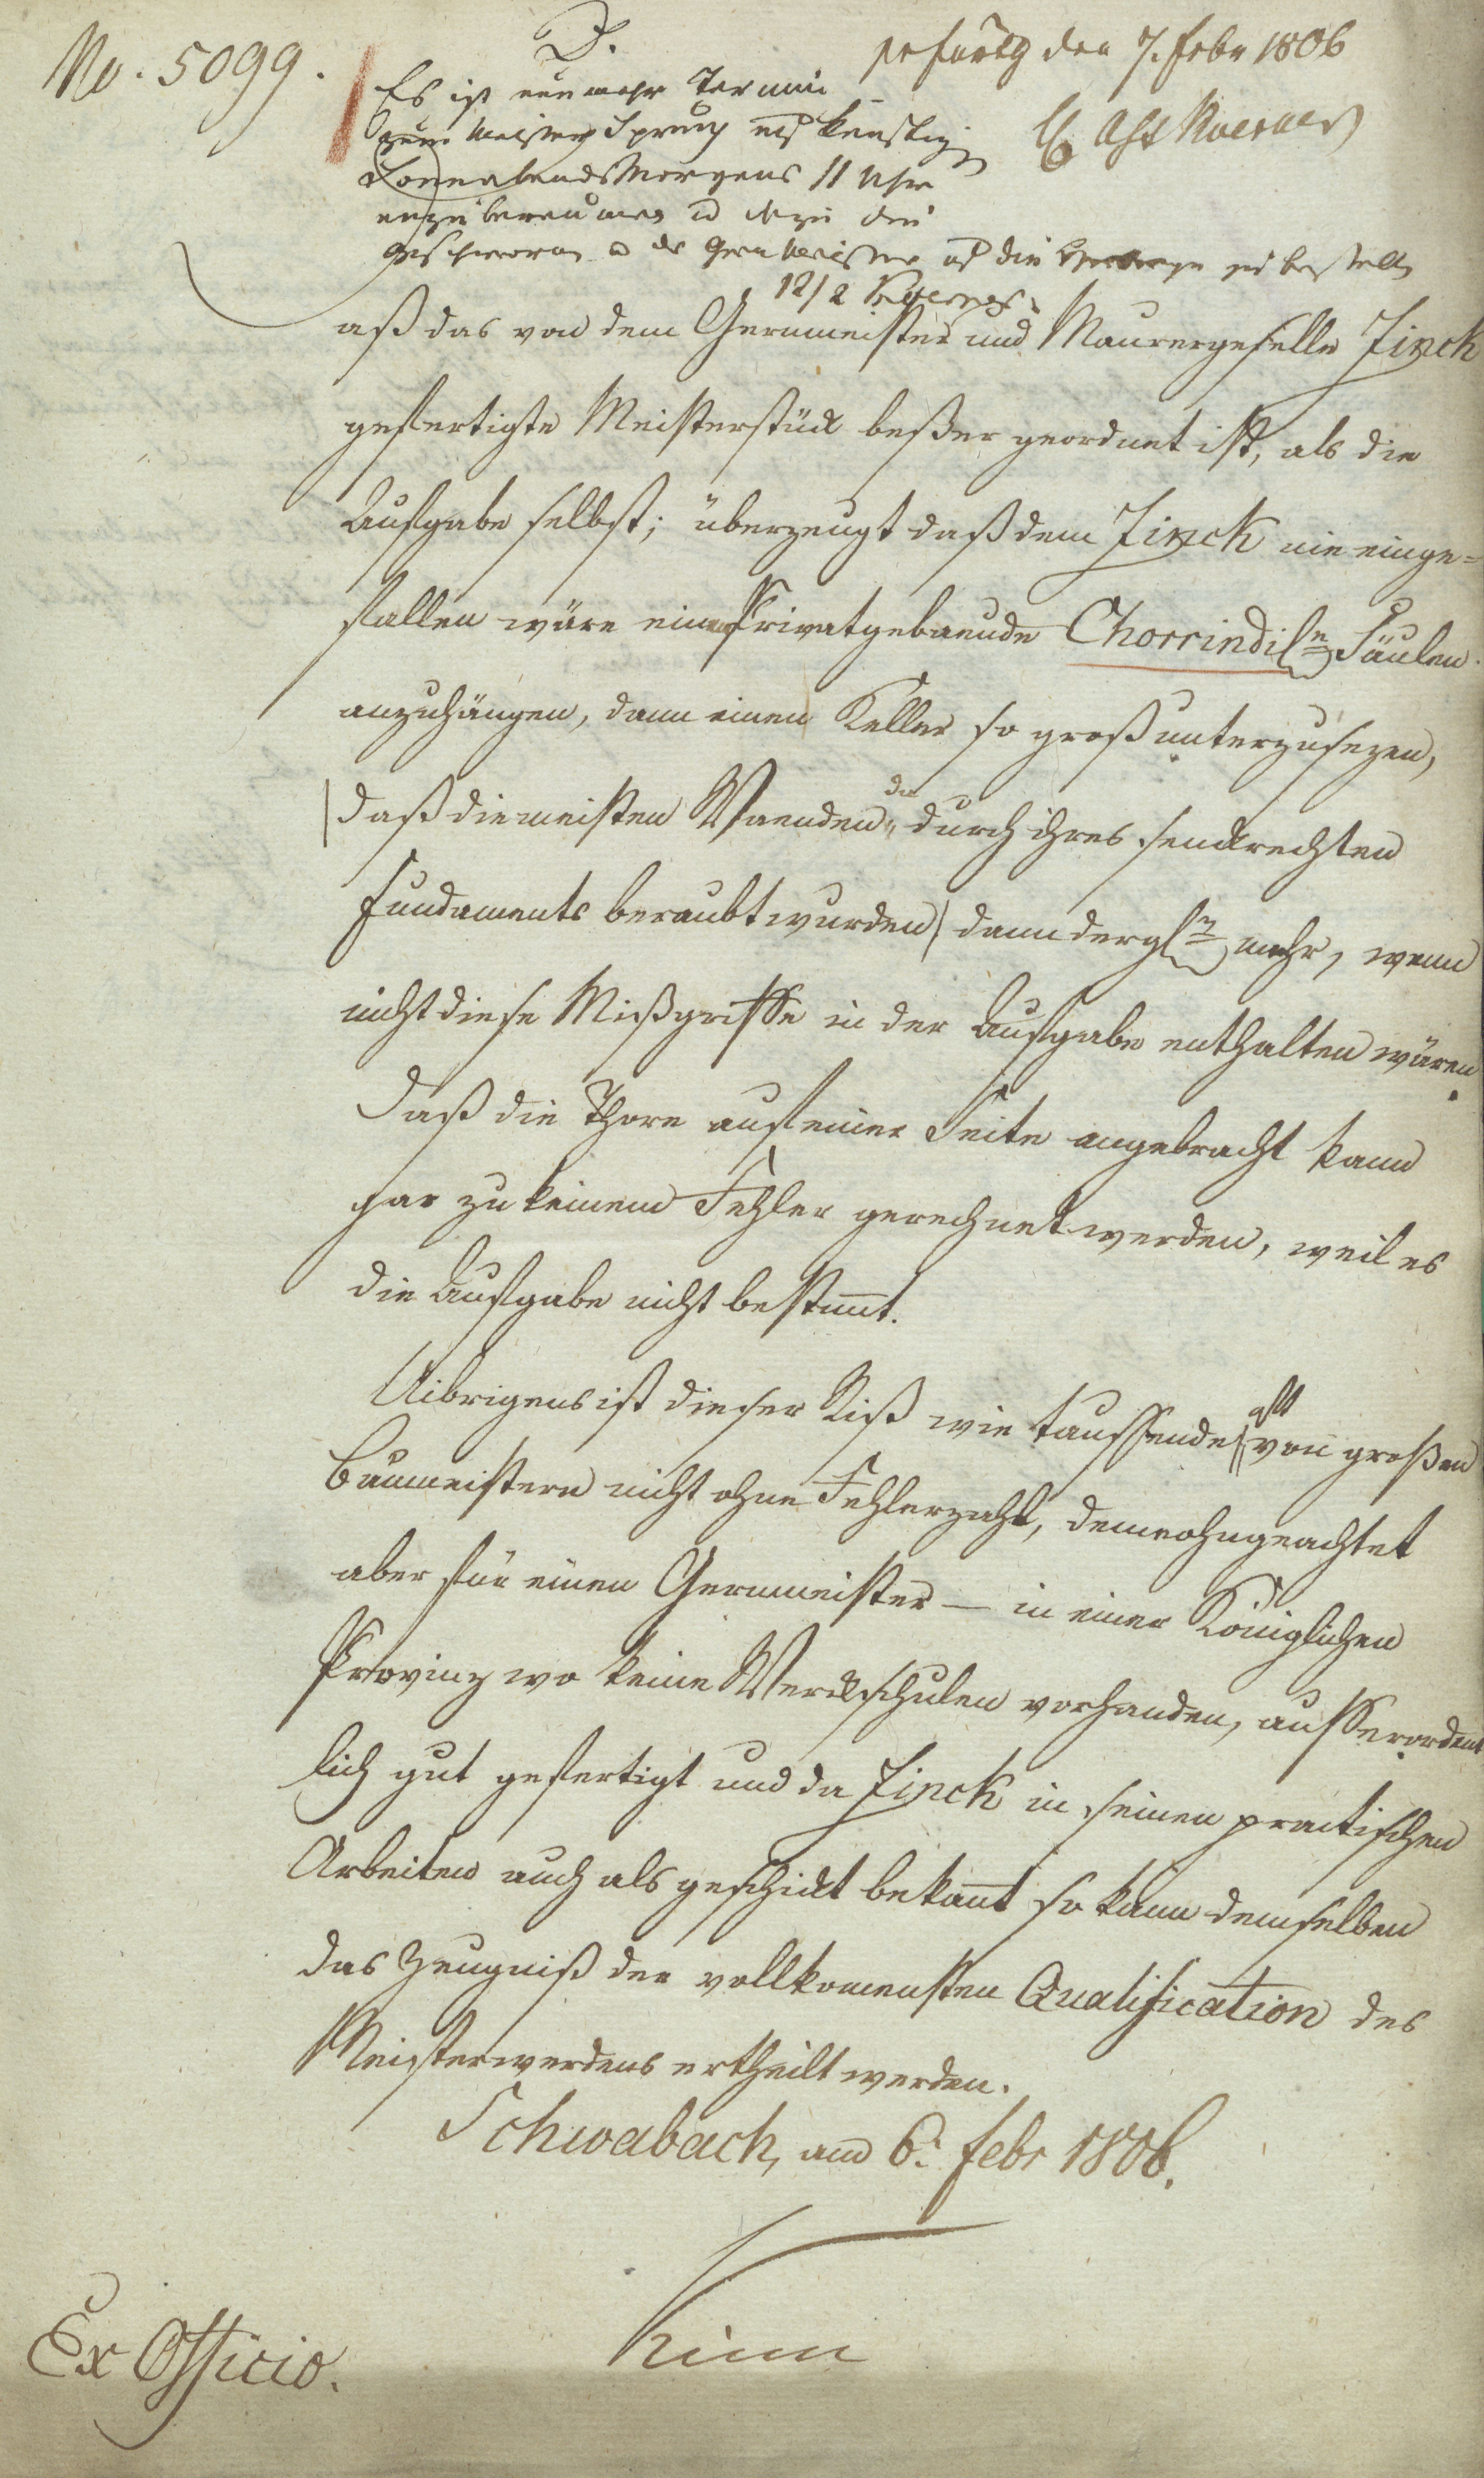 No. 5099.
D.
Es ist nunmehr Termin
zum Meister Spruch auf künftigen
Sonnabends Morgens 11 Uhr
anzuberaumen u dazu die
Geschworen u der Germeister auf die zu bestellen
12/2
den 7. Febr 1806
aß das von dem Germmeister und Maurergeselle Zinck
gefertigte Meisterstück beßer geordnet ist, als die
Aufgabe selbst; überzeugt daß dem Zinck nie einge-
fallen wäre einem Privatgebaeude Chorrindisn Säulen
anzuhängen, dann einen Keller so groß unterzusezen,
daß die meisten Waenden da durch ihres senckrechten
Fundaments beraubt wurden dann dergln mehr, wenn
nicht diese Mißgriffe in der Aufgabe enthalten wären.
Daß die Thore auf einer Seite angebracht kann
gar zu keinem Fehler gerechnet werden, weil es
die Aufgabe nicht bestimt.
Uibrigens ist dieser Riß wie taussende oft von großen
Baumeistern nicht ohne Fehlerzahl, demeohngeachtet
aber für einen Germmeister — in einer Königlichen
Provinz wo keine Werckschulen vorhanden, ausserordent
lich gut gefertigt und da Zinck in seinen practischen
Arbeiten auch als geschickt bekant so kann demselben
das Zeugniß der vollkomensten Qualification des
Meisterwerdens ertheilt werden.
Schwabach, am 6. Febr 1806.
Kinn
Ex Officio.